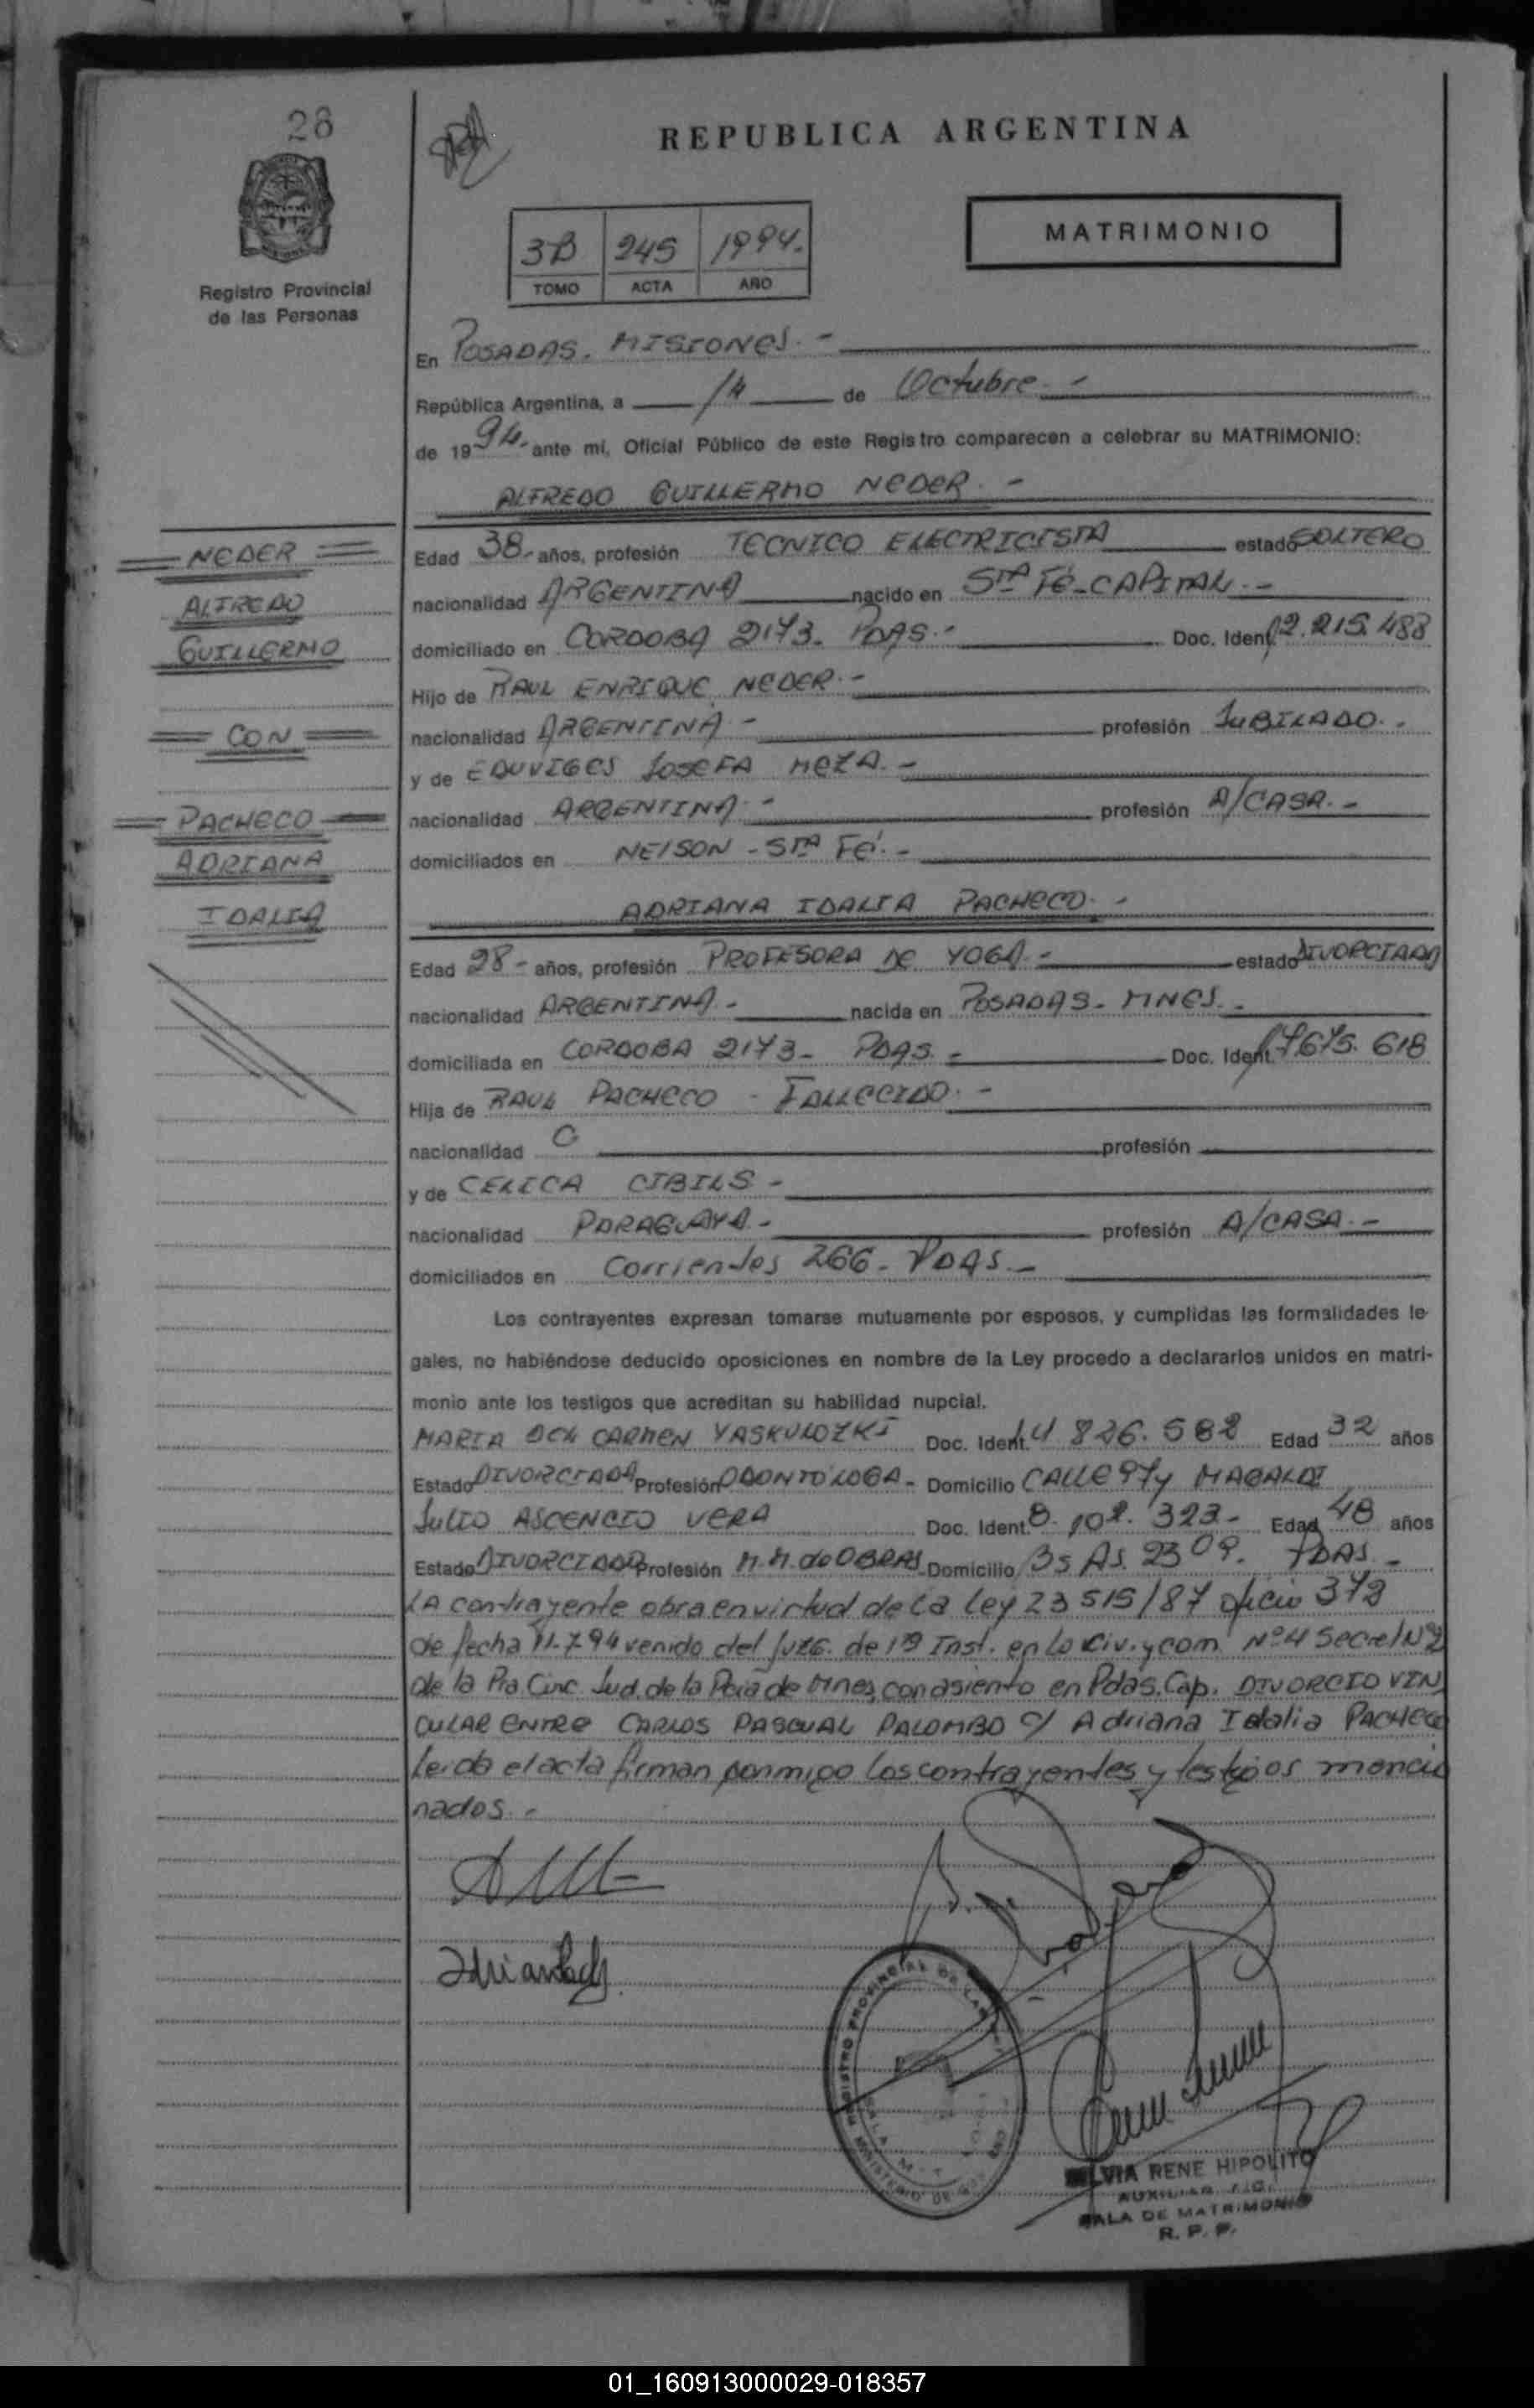 28
REPUBLICA ARGENTINA
MATRIMONIO
3B 245 1994.
TOMO ACTA AÑO
Registro Provincial
de las Personas
En POSADAS. MISIONES. -
República Argentina, a 14 de Octubre. -
de 1994. ante mi, Oficial Público de este Registro comparecen a celebrar su MATRIMONIO:
ALFREDO GUILLERMO NEDER. -
NEDER
ALFREDO
GUILLERMO
CON
PACHECO
ADRIANA
IDALIA
Edad 38.- años, profesión TECNICO ELECTRICISTA estado SOLTERO
nacionalidad ARGENTINA nacido en STA FÉ-CAPITAL. -
domiciliado en CORDOBA 2173. PDAS. - Doc. Ident. 12.215.488
Hijo de RAUL ENRIQUE NEDER. -
nacionalidad ARGENTINA - profesión JUBILADO. .
y de EDUVIGES JOSEFA MEZA. -
nacionalidad ARGENTINA. - profesión A/CASA. -
domiciliados en NELSON - STA FÉ. -
ADRIANA IDALIA PACHECO. -
Edad 28 - años, profesión PROFESORA DE YOGA. - estado DIVORCIADA
nacionalidad ARGENTINA. - nacida en POSADAS - MNES. -
domiciliada en CORDOBA 2173 - PDAS. - Doc. Ident. 17.675.618
Hija de RAUL PACHECO - FALLECIDO. -
nacionalidad profesión
y de CELICA CIBILS -
nacionalidad PARAGUAYA. - profesión A/CASA. -
domiciliados en Corrientes 266 - PDAS. -
Los contrayentes expresan tomarse mutuamente por esposos, y cumplidas las formalidades le-
gales, no habiéndose deducido oposiciones en nombre de la Ley procedo a declararlos unidos en matri-
monio ante los testigos que acreditan su habilidad nupcial.
MARIA DEL CARMEN YASKULOZKI Doc. Ident. 14 826.582 Edad 32 años
Estado DIVORCIADA Profesión ODONTÓLOGA - Domicilio CALLE 97 y MAGALDI
JULIO ASCENCIO VERA Doc. Ident. 8.102.323 - Edad 48 años
Estado DIVORCIADO Profesión M.M. de OBRAS Domicilio Bs As. 2309. PDAS. -
LA contrayente obra en virtud de la Ley 23 515/87 oficio 372
de fecha 11-7-94 venido del Juzg. de 1ra Inst. en lo Civ. y com. Nº4 Secret Nº2
de la Pra Circ. Jud. de la Pcia de Mnes, con asiento en Pdas. Cap. DIVORCIO VIN
CULAR ENTRE CARLOS PASCUAL PALOMBO C/ Adriana Idalia PACHECO
Leida el acta firman conmigo los contrayentes y testigos mencio
nados. -
REGISTRO PROVINCIAL DE LAS
MINISTERIO DE GOB
SILVIA RENE HIPOLITO
AUXILIAR
SALA DE MATRIMONIO
R. P. P.
01_160913000029-018357